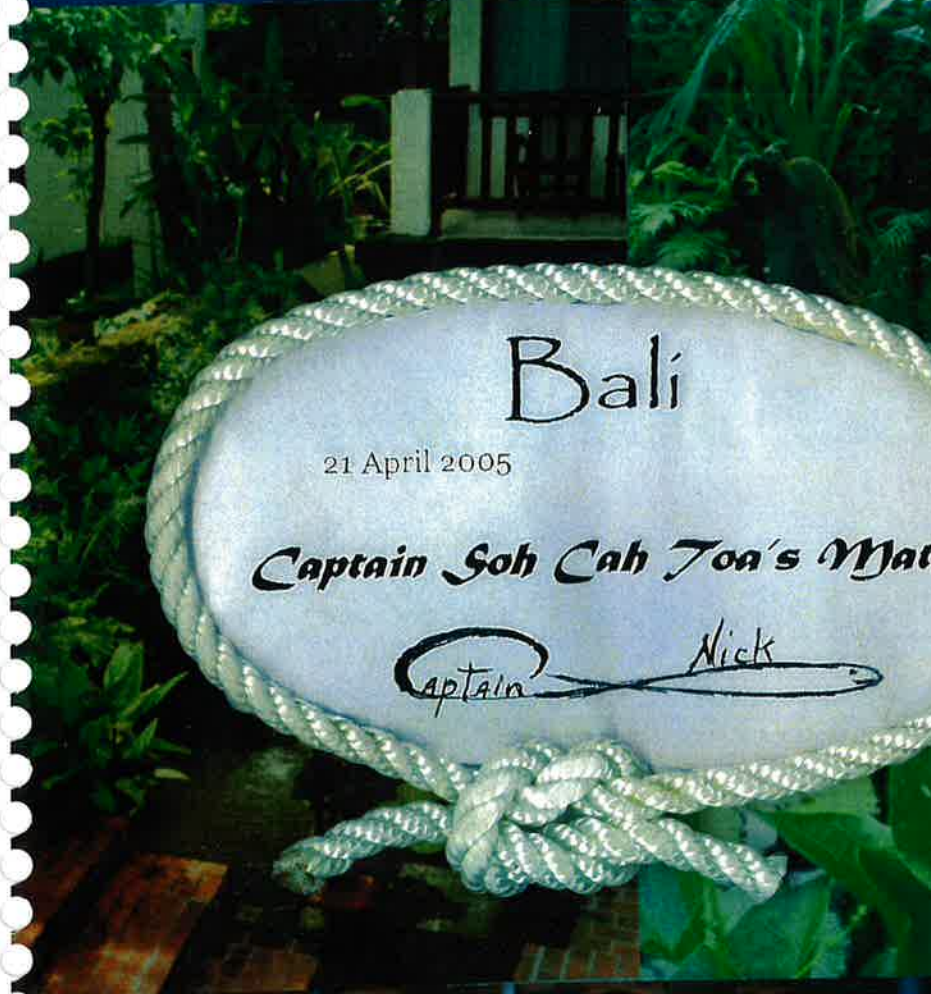 Bali
21 April 2005
Captain Soh Cah Toa's Mat
Captain Nick